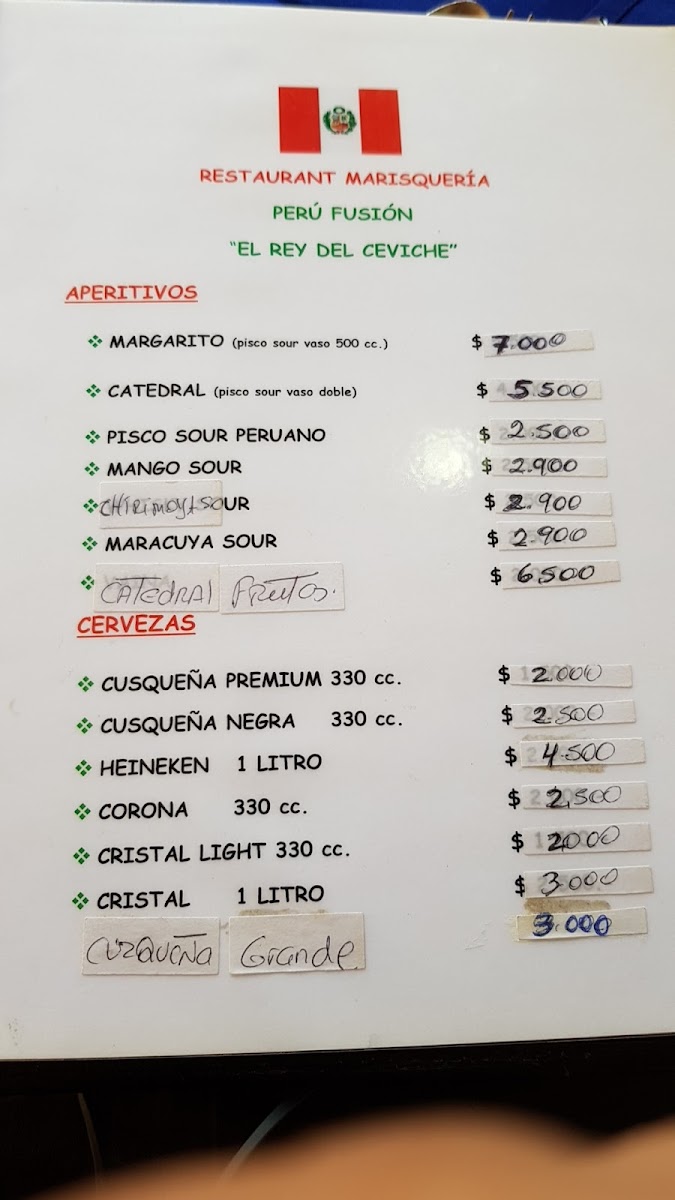 RESTAURANT MARISQUERÍA
PERÚ FUSIÓN
"EL REY DEL CEVICHE"
APERITIVOS
MARGARITO (pisco sour vaso 500 cc.) $ 7.000
CATEDRAL (pisco sour vaso doble) $ 5.500
PISCO SOUR PERUANO $ 2.500
MANGO SOUR $ 2.900
CHIRIMOYA SOUR $ 2.900
MARACUYA SOUR $ 2.900
CATEDRAL FRUTOS. $ 6500
CERVEZAS
CUSQUEÑA PREMIUM 330 cc. $ 2.000
CUSQUEÑA NEGRA 330 cc. $ 2.500
HEINEKEN 1 LITRO $ 4.500
CORONA 330 cc. $ 2,500
CRISTAL LIGHT 330 cc. $ 2000
CRISTAL 1 LITRO $ 3.000
CUZQUEÑA Grande 3.000